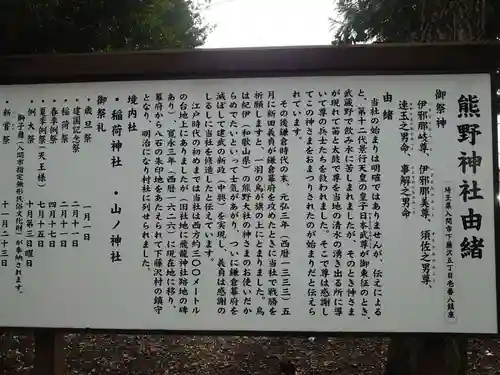 熊野神社由緒
埼玉県入間市下藤沢五丁目壱番八鎮座
御祭神
伊邪那岐尊、伊邪那美尊、須佐之男尊、
速玉之男命、事解之男命
由緒
当社の始まりは明確ではありませんが、伝えによる
と、第十二代景行天皇の皇子日本武尊が御東征のとき、
武蔵野で飲み水に苦しまれました。そのとき神さま
が現れて笛と太鼓で尊を当社の清水の湧き出る所に導
いて尊と兵士たちを救われました。そこで尊は感謝し
てその神さまをおまつりされたのが始まりだと伝えら
れています。
その後鎌倉時代の末、元弘三年（西暦一三三三）五
月に新田義貞が鎌倉幕府を攻めたときに当社で戦勝を
祈願しますと、一羽の烏が旗の上にとまりました。烏
は紀伊（和歌山県）の熊野大社の神さまのお使いだか
らめでたいといって士気があがり、ついに鎌倉幕府を
滅ぼして建武の新政（中興）を実現し、義貞は感謝の
しるしに当社を修造したと伝えています。
江戸時代の初めまでは当社は西方約一〇〇メートル
の台地上にありましたが、当社地に飛龍神社跡地の碑
あり、寛永三年（西暦一六二六）に現在地に移り、
幕府から八石の朱印地をあたえられて下藤沢村の鎮守
となり、明治になり村社に列せられました。
境内社
・稲荷神社 ・山ノ神社
御祭礼
・歳旦祭 一月一日
・建国記念祭 二月十一日
・稲荷祭 二月十一日
・春季例祭 四月十五日
・夏季例祭（天王様） 七月十五日
・例大祭 十月第三日曜日
獅子舞（入間市指定無形民俗文化財）が奉納されます。
・新嘗祭 十一月二十三日